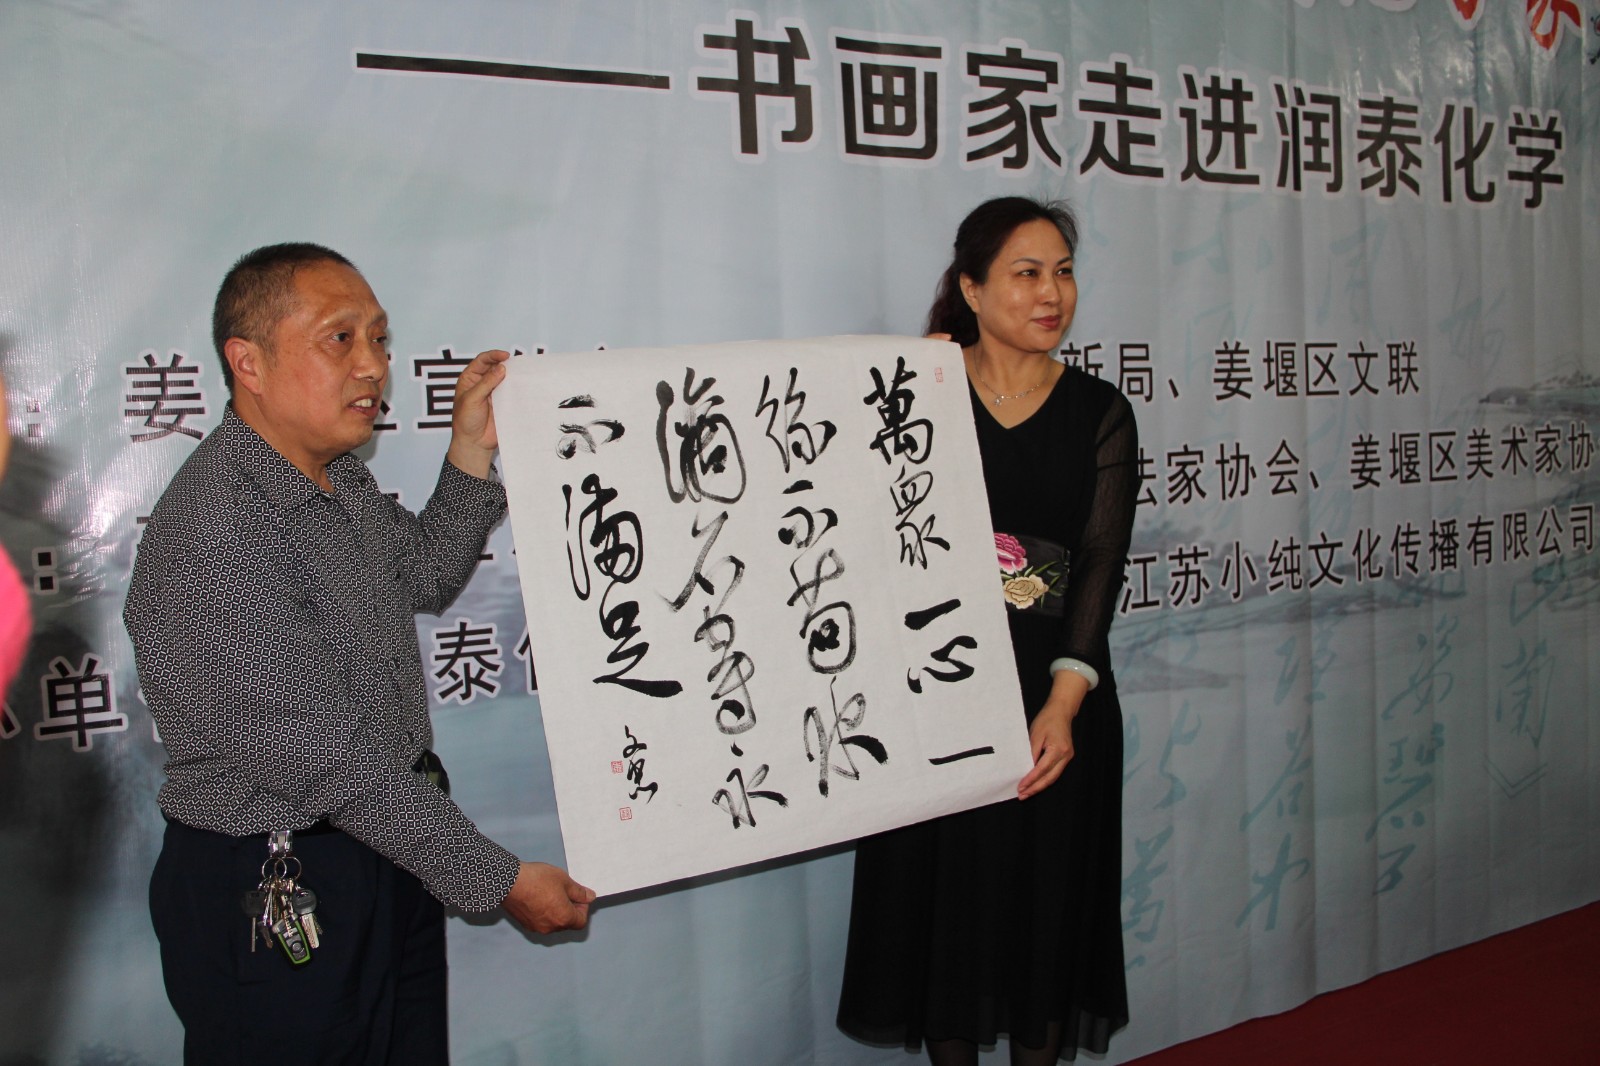 ——书画家走进润泰化学
：姜 区宣 新局、姜堰区文联
： 法家协会、姜堰区美术家协
江苏小纯文化传播有限公司
单 泰
萬眾一心一
絲不苟水
滴石穿永
不滿足